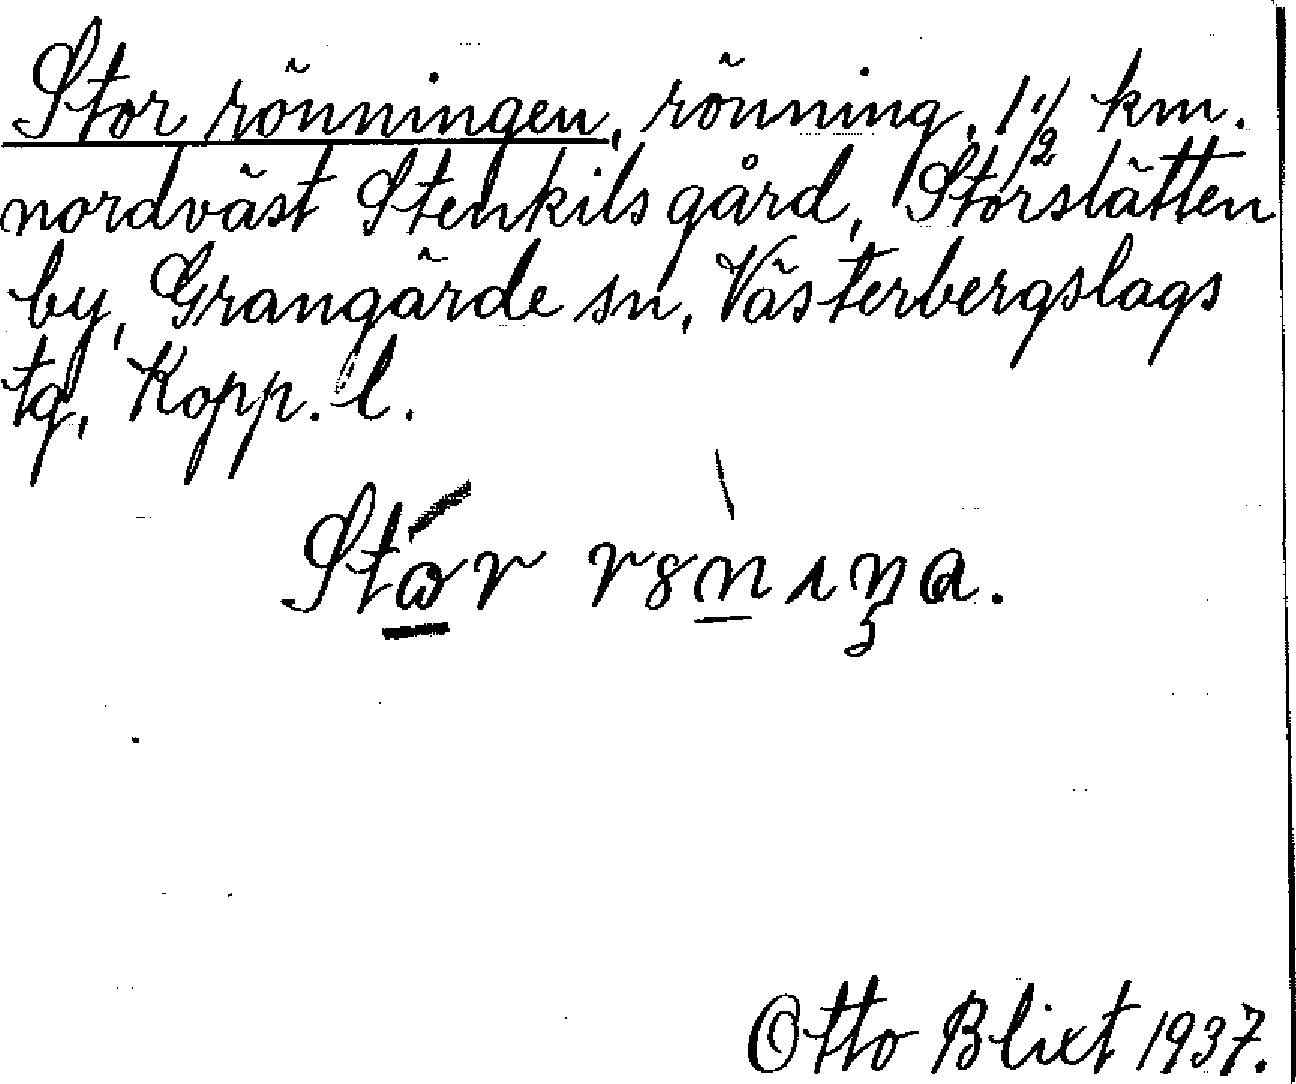 Stor rönningen, rönning, 1 1/2 km.
nordväst Stenkilsgård, Storslätten
by, Grangärde sn, Västerbergslags
tg, Kopp. l.
Otto Blixt 1937.